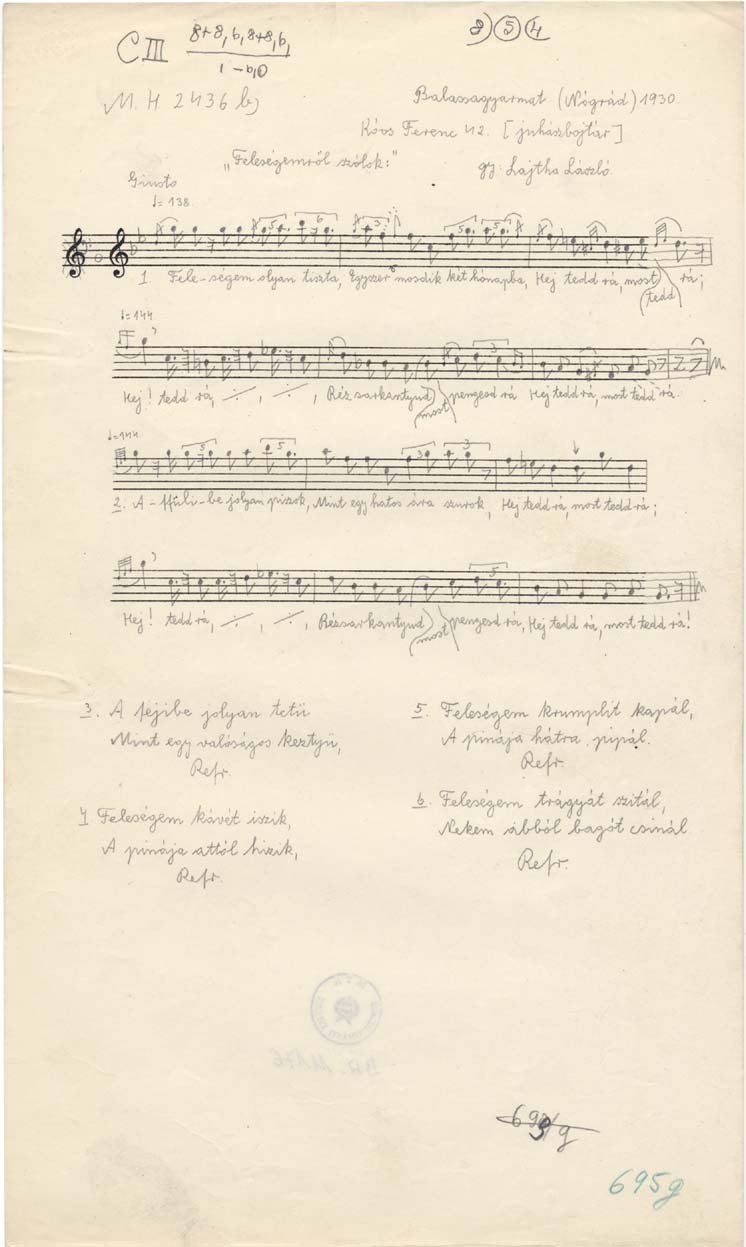 C III 8+8, 6, 8+8, 6,
1 - b10
8) 5 4
M. H. 2436 b)
Balassagyarmat (Nógrád) 1930.
Kóos Ferenc 42. [juhászbojtár]
"Feleségemről szólok:"
gy: Lajtha László.
Giusto
= 138
1. Fele-ségem olyan tiszta, Egyszer mosdik két hónapba, Hej tedd rá, most rá;
tedd
= 144
Hej! tedd rá, ./., ./., Rézsarkantyud pengesd rá Hej tedd rá, most tedd rá.
most
= 144
2. A-ffüli-be jolyan piszok, Mint egy hatos ára szurok, Hej tedd rá, most tedd rá;
Hej! tedd rá, ./., ./., Rézsarkantyud pengesd rá, Hej tedd rá, most tedd rá!
most
3. A fejibe jolyan tetü
Mint egy valóságos keztyü,
Refr.
4 Feleségem kávét iszik,
A pinája attól hizik,
Refr.
5. Feleségem krumplit kapál,
A pinája hátra pipál.
Refr.
6. Feleségem trágyát szitál,
Nekem abból bagót csinál
Refr.
695g